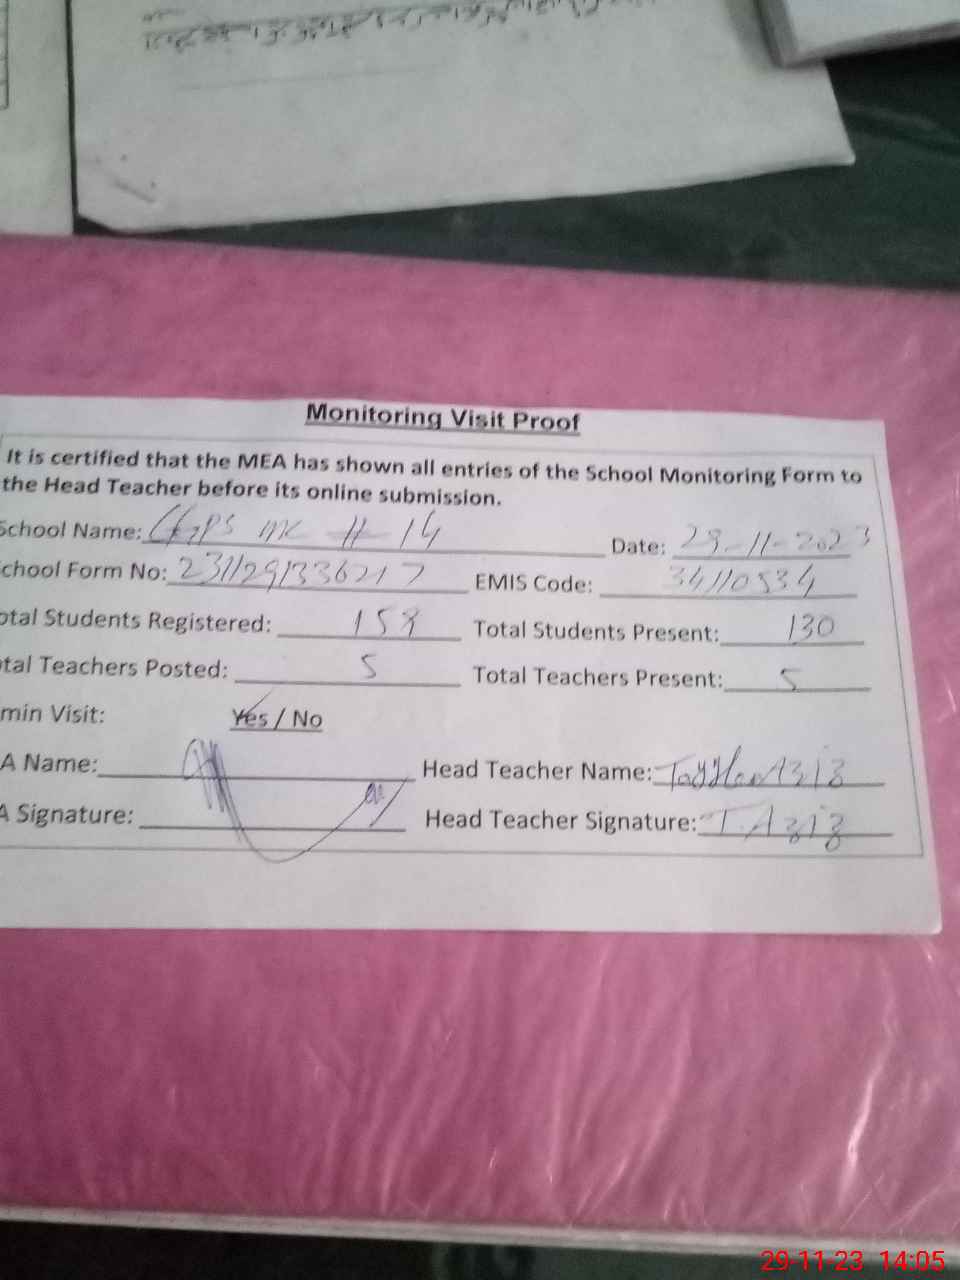 Monitoring Visit Proof
It is certified that the MEA has shown all entries of the School Monitoring Form to
the Head Teacher before its online submission.
School Name: GGPS MC # 14 Date: 29-11-2023
chool Form No: 2311291336217 EMIS Code: 34110534
otal Students Registered: 158 Total Students Present: 130
tal Teachers Posted: 5 Total Teachers Present: 5
min Visit: Yes / No
A Name: Head Teacher Name: Aziz
A Signature: Head Teacher Signature: T. Aziz
29-11-23 14:05